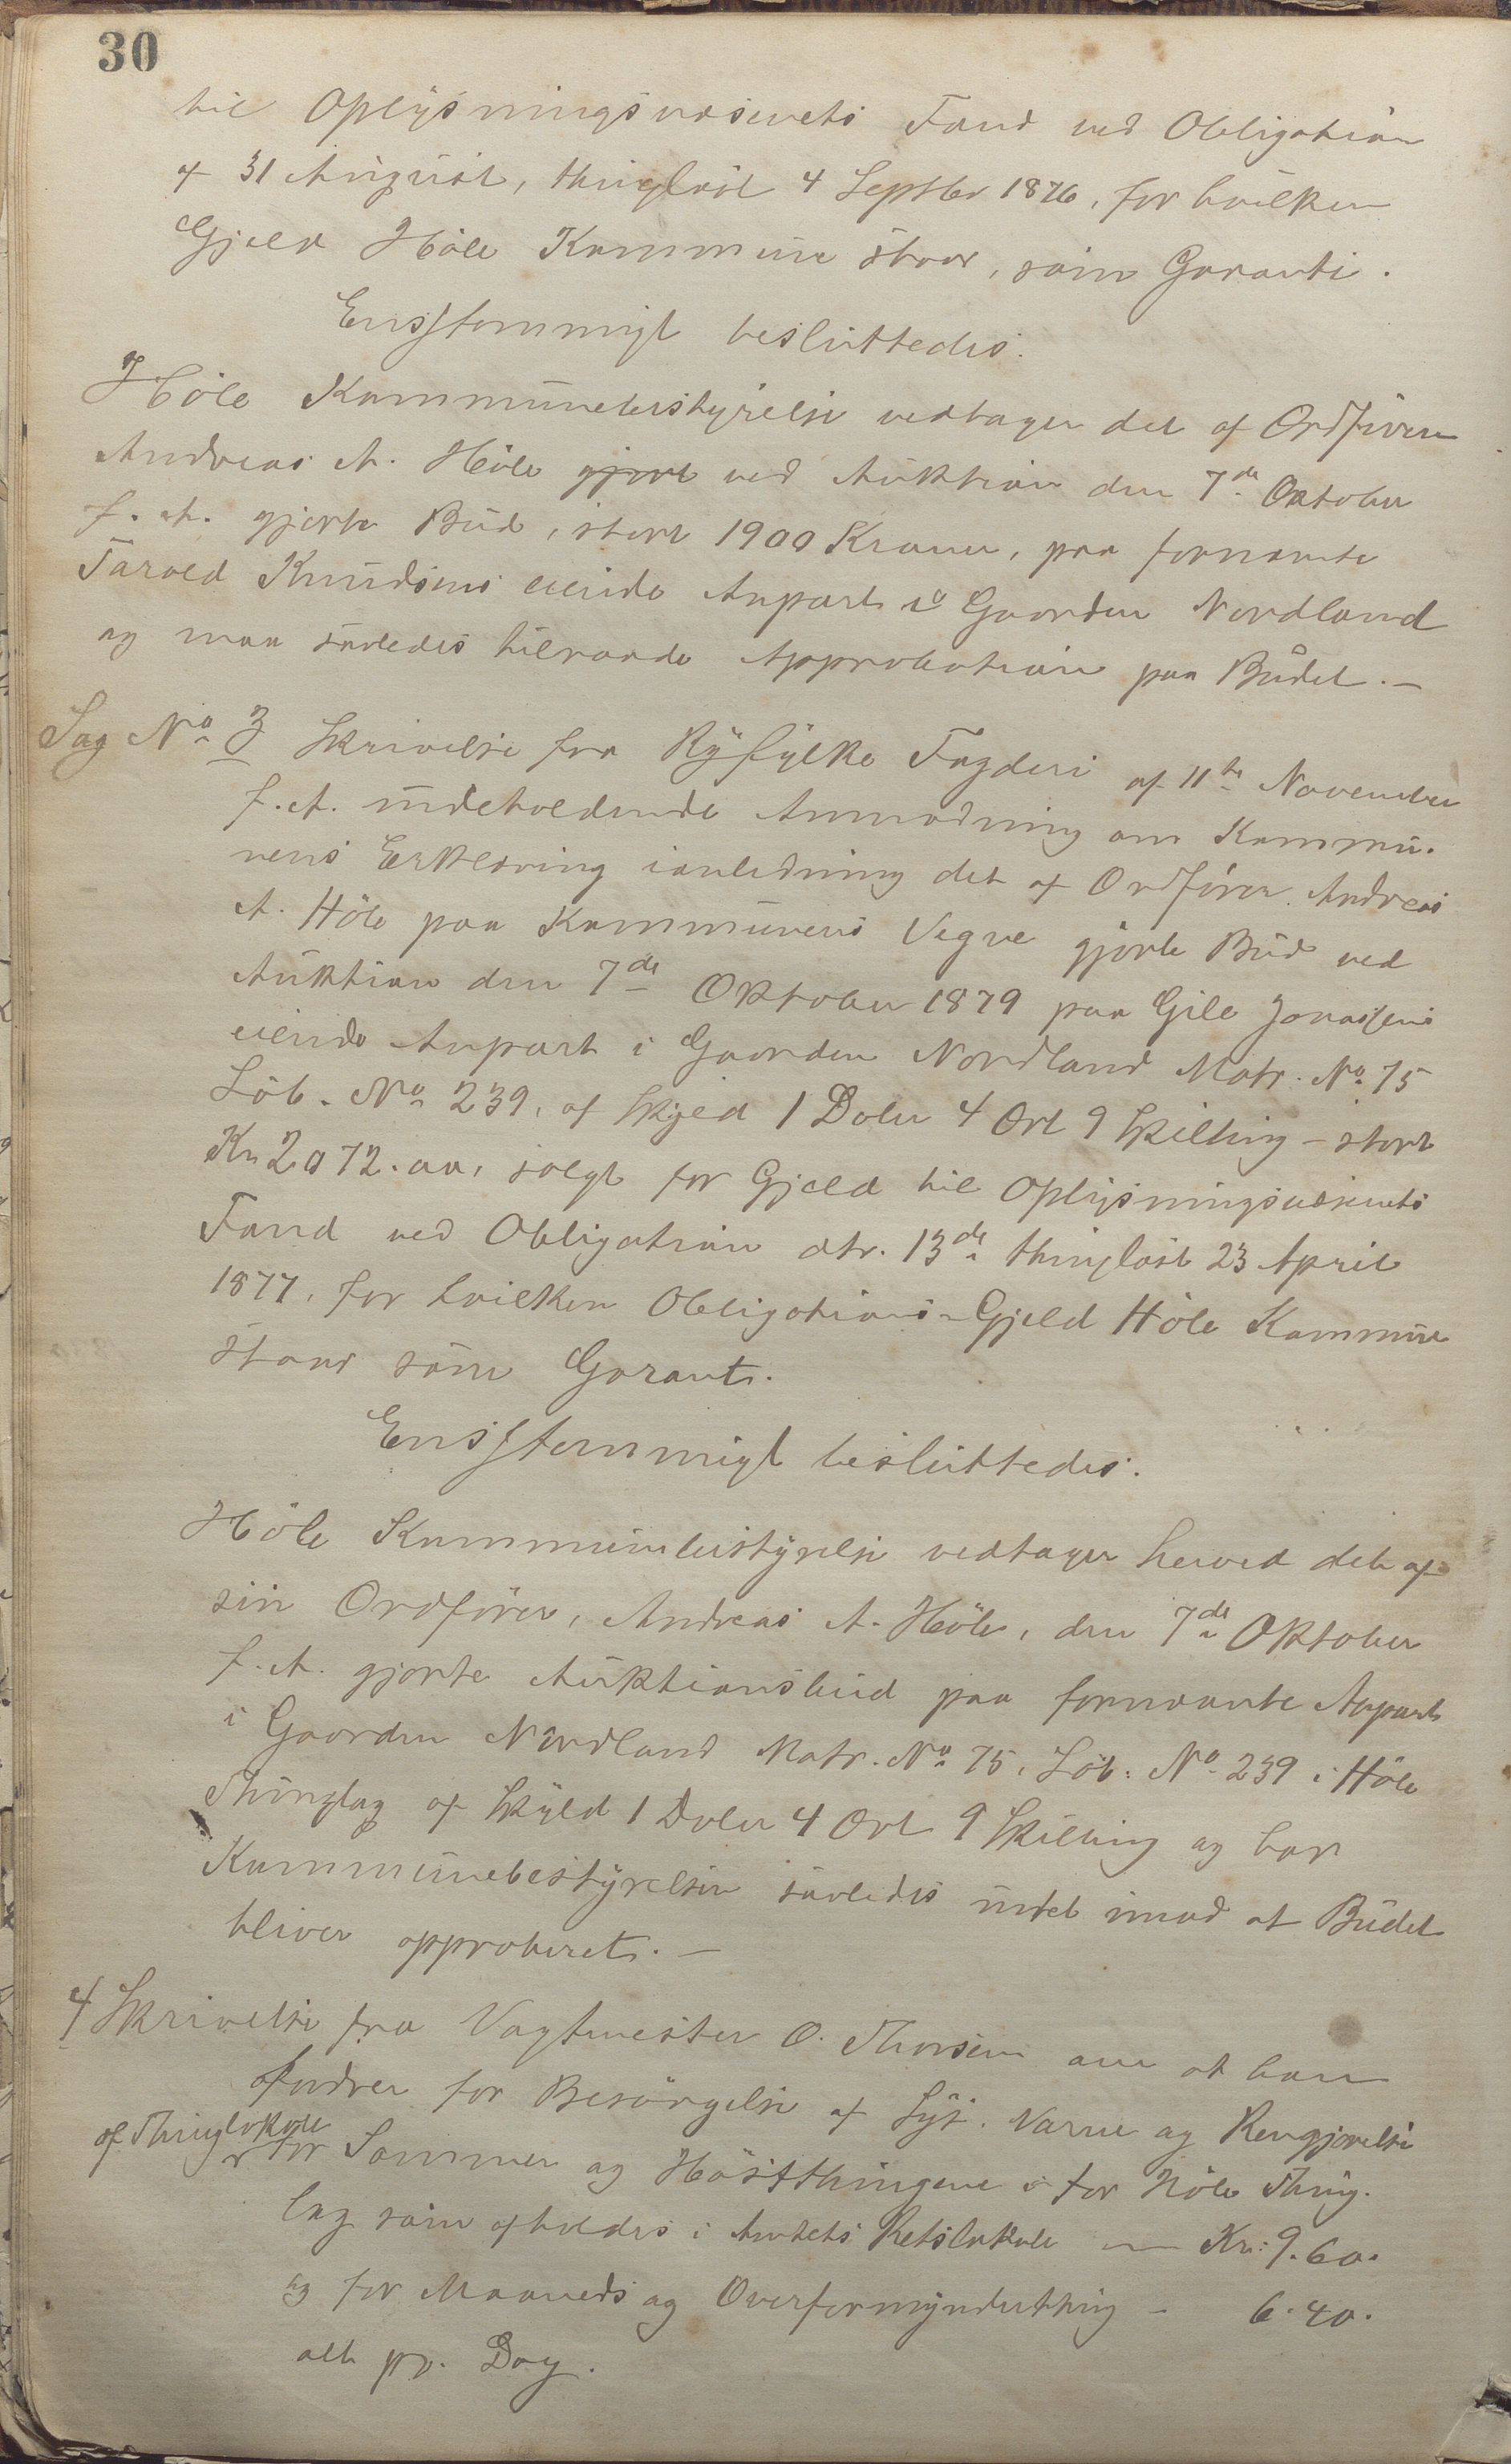 30
til Oplysningsvæsenets Fond ved Obligation
af 31 August, thinglæst 4 Septbr 1876, for hvilken
Gjæld Höle Kommune staar, som Garanti.
Ensstemmigt besluttedes.
Höle Kommunebestyrelse vedtager det af Ordförer
Andreas A. Höle gjort ved Auktion den 7de Oktober
f. A. gjorte Bud, stort 1900 Kroner, paa fornævnte
Tarald Knudsens eiende Anpart i Gaarden Nordland
og maa saaledes tilraade Approbation paa Budet.—
Sag No 3 Skrivelse fra Ryfylke Fogderi af 11te November
f. A. indeholdende Anmodning om Kommu-
nens Erklæring ianledning det af Ordförer Andreas
A. Höle paa Kommunens Vegne gjorte Bud ved
Auktion den 7de Oktober 1879 paa Gile Jonassens
eiende Anpart i Gaarden Nordland Matr. No 75
Löb. No 239, af Skyld 1 Daler 4 Ort 9 Skilling – stort
Kr 2072.00, solgt for Gjæld til Oplysningsvæsenets
Fond ved Obligation dtr. 13de thinglæst 23 April
1877, for hvilken Obligations-Gjæld Höle Kommune
staar som Garant.
Ensstemmigt besluttedes.
Höle Kommunebestyrelse vedtager herved det af
sin Ordförer, Andreas A. Höle, den 7de Oktober
f. A. gjorte Auktionsbud paa fornævnte Anpart
i Gaarden Nordland Matr. No 75, Löb. No 239 i Höle
Thinglag af Skyld 1 Daler 4 Ort 9 Skilling og har
Kommunebestyrelsen saaledes intet imod at Budet
bliver approberet.—
4 Skrivelse fra Vagtmester O. Thorsen om at han
fordrer for Besörgelse af Lys, Varme og Rengjörelse
af Thinglokale
for Sommer og Höstthingene for Höle Thing-
lag som afholdes i Amtets Retslokale — Kr: 9.60.
og for Maaneds og Overformynderthing – 6.40.
alt pr. Dag.